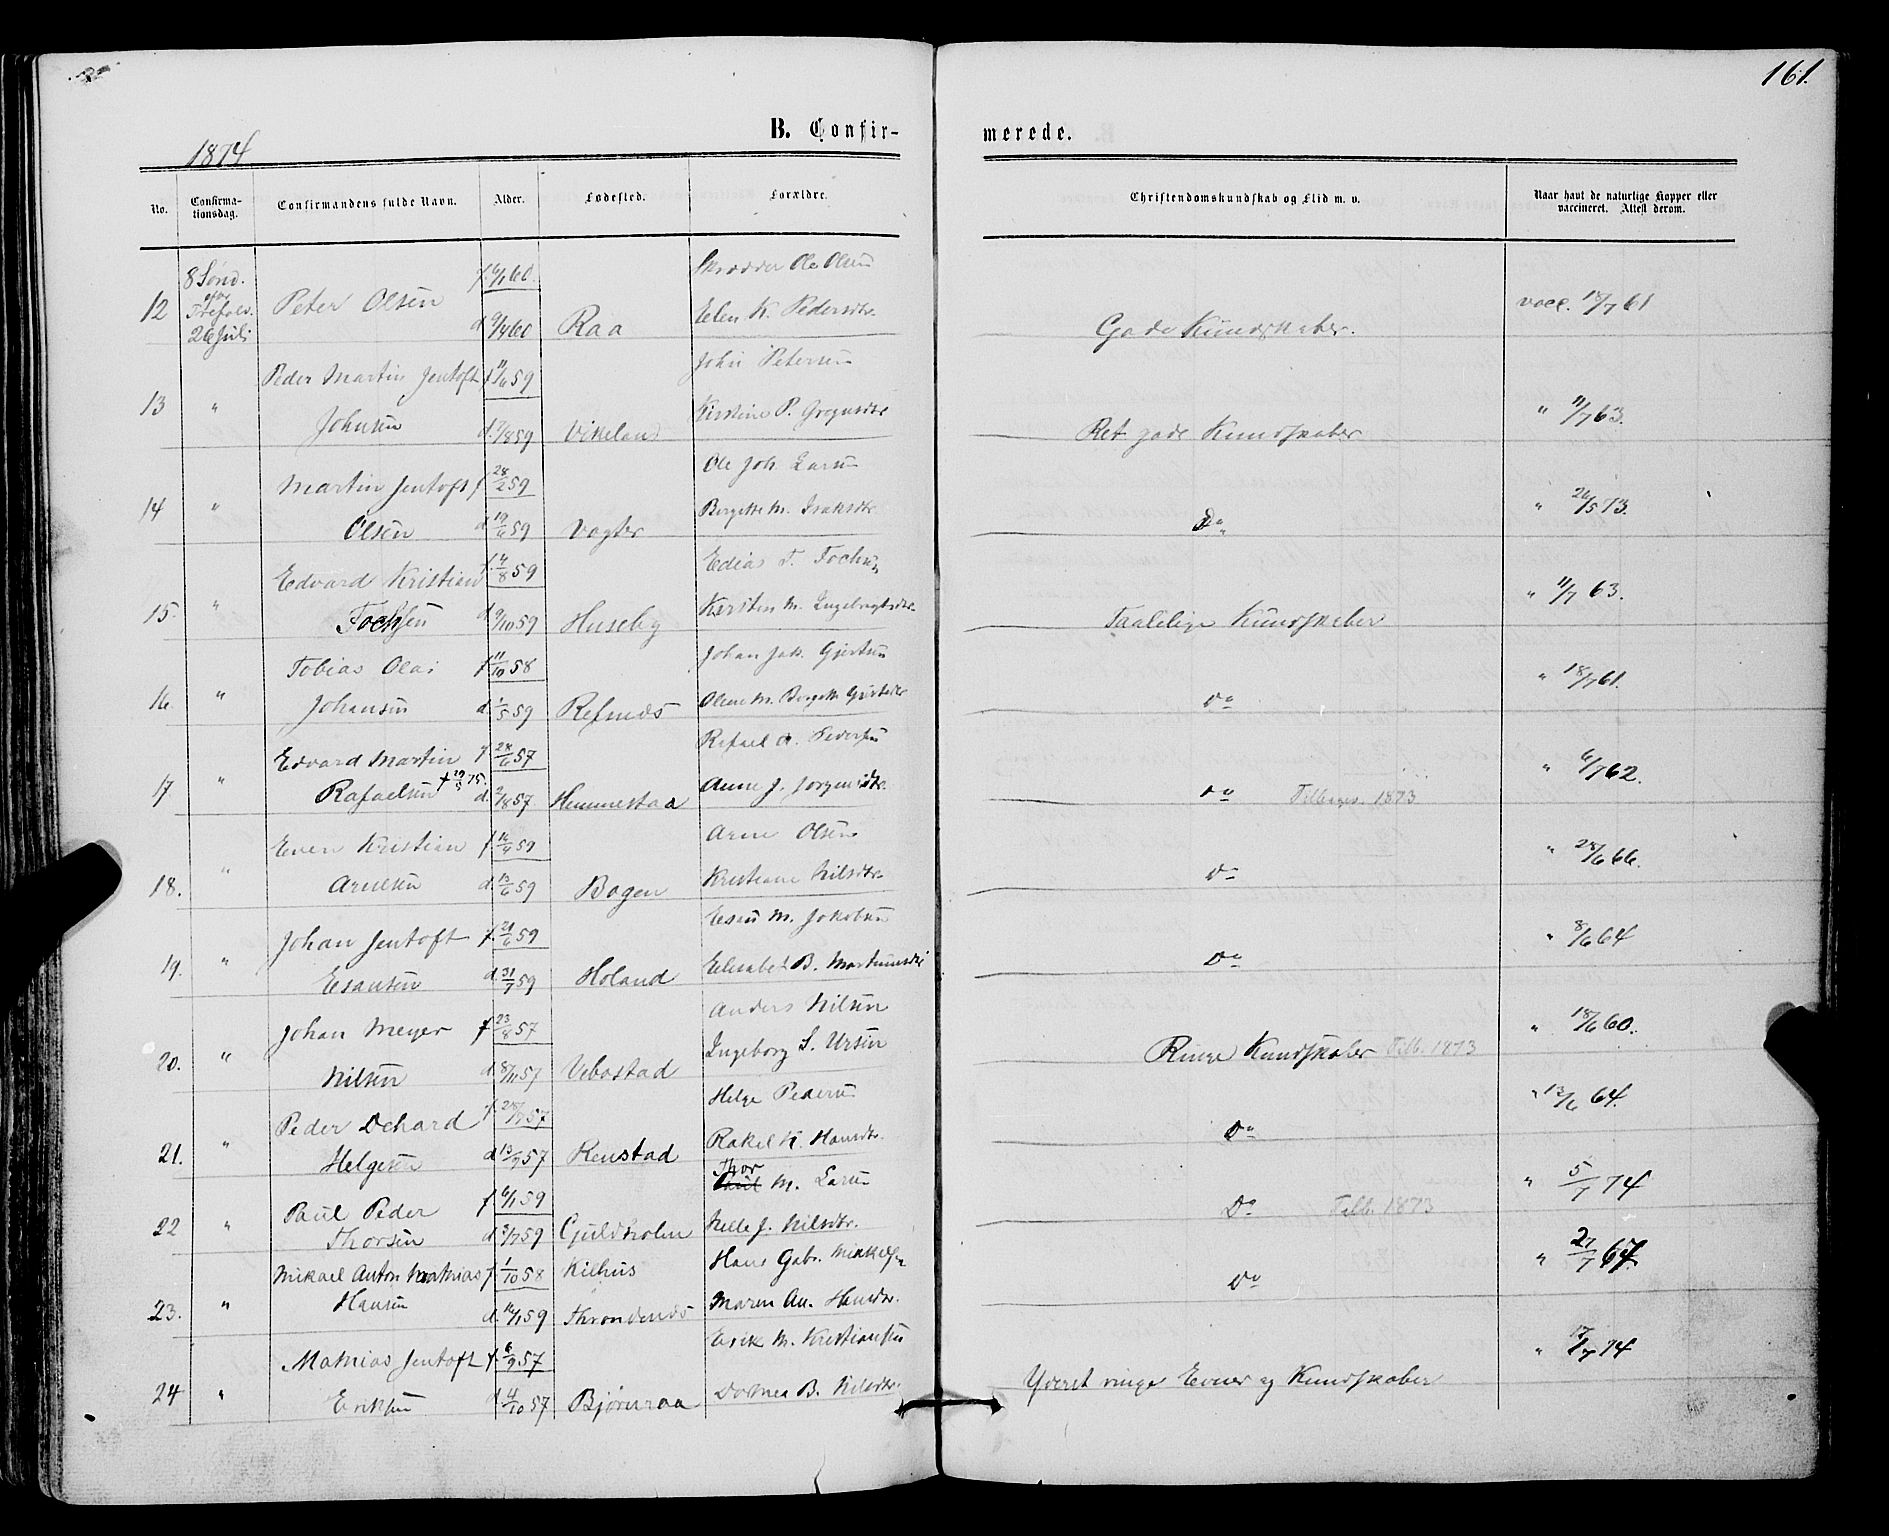 161.
B. Confir- merede.
1874
No. Confirma-tionsdag. Confirmandens fulde Navn. Alder. Fødested. Forældre. Christendomskundskab og Flid m. v. Naar havt de naturlige Kopper eller vaccineret. Attest derom.
8 Sønd. f. 6/1 60. Skrædder Ole Olsen
12 Peter Olsen vacc. 18/7 61
26 Juli d. 9/4 60 Raa Elen K. Pedersdtr. Gode Kundskaber.
Peder Martin Jentoft f. 11/6 59 John Petersen
13 " Johnsen d. 7/8 59 Vikeland Kirstine P. Ret gode Kundskaber " 11/7 63.
Martin Jentoft f. 28/2 59 Ole Joh. Larsen
14 " Olsen d. 19/6 59 Vagter Bergitte M. Isaksdtr. Do " 26/5 73.
Edvard Kristian f. 4/8 59 Edias T. Fochsen
15. " Fochsen d. 9/10 59 Huseby Kirsten M. Ingebrigtsdtr. Taalelige Kundskaber " 11/7 63.
Tobias Olai f. 11/10 58 Johan Jak. Gjertsen
16. " Johansen d. 1/5 59 Refsnæs Oline M. Bergitte Do " 18/7 61.
Edvard Martin f. 28/6 57 Rafael A. Pedersen
17 " Rafaelsen + 29/5 75. d. 2/8 57 Hemmestad Anne J. Jørgensdtr. Do Tilbages. 1873 " 6/7 62.
Even Kristian f. 14/4 59 Arne Olsen
18. " Arnesen d. 13/6 59 Bogen Kristiane Nilsdtr. Do " 28/6 66.
Johan Jentoft f. 21/6 59 Esau M. Jakobsen
19. " Esausen d. 31/7 59 Holand Elisabet B. Martinusdtr Do " 8/6 64
Johan Meyer f. 23/8 57 Anders Nilsen
20. " Nilsen d. 8/11 57 Vebostad Ingeborg S. Ursin Ringe Kundskaber Tilb. 1873 " 18/6 60.
Peder Dehard f. 28/7 57 Helge Pedersen
21. " Helgesen d. 13/9 57 Renstad Rakel K. Hansdtr. Do " 13/6 64.
Paul Peder f. 6/1 59 Thor M. Larsen
22 " Thorsen d. 3/7 59 Guldholm Nelle J. Nilsdtr. Do Tilb. 1873 " 5/7 74
Mikael Anton Mathias f. 1/10 58 Kilhus Hans Gabr. Mikkelsen
23. " Hansen d. 16/1 59 Throndenæs Maren An. Hansdtr. Do " 27/7 67.
Mathias Jentoft f. 6/9 57 Erik M. Kristiansen
24 " Eriksen d. 4/10 57 Bjørnraa Dothea B. Nilsdtr. Yderst ringe Evner og Kundskaber " 17/7 74